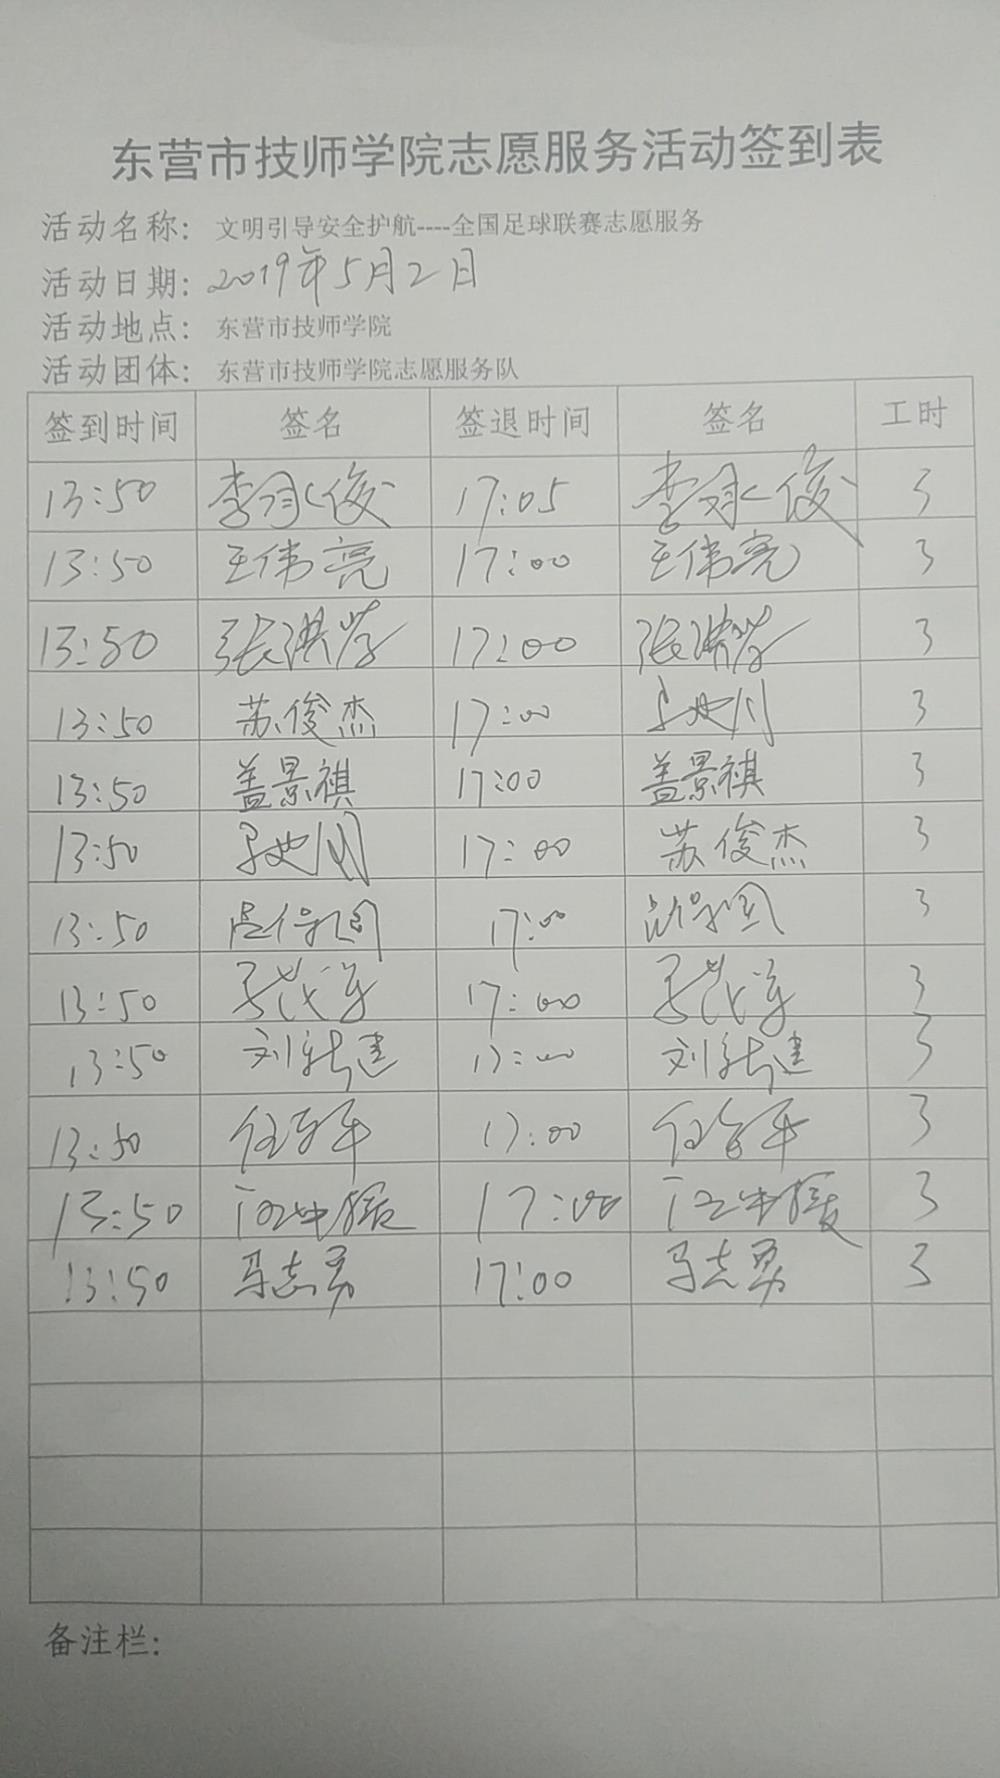 东营市技师学院志愿服务活动签到表
活动名称: 文明引导安全护航----全国足球联赛志愿服务
活动日期: 2019年5月2日
活动地点: 东营市技师学院
活动团体: 东营市技师学院志愿服务队
签到时间 签名 签退时间 签名 工时
13:50 李永俊 17:05 李永俊 3
13:50 王伟亮 17:00 王伟亮 3
13:50 张洪 17:00 张洪 3
13:50 苏俊杰 17:00 3
13:50 盖景祺 17:00 盖景祺 3
13:50 17:00 苏俊杰 3
13:50 17:00 3
13:50 17:00 3
13:50 刘新建 17:00 刘新建 3
13:50 任 平 17:00 任 平 3
13:50 17:00 3
13:50 马志勇 17:00 马志勇 3
备注栏: